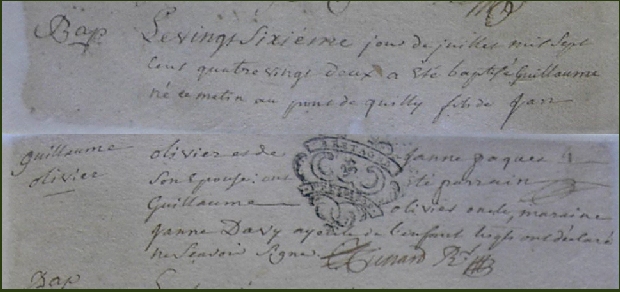 Bap. Le vingt sixiéme jour de juillet mil sept
cent quatrevingt deux a eté baptisé guillaume
né ce matin au pont de quilly fils de jan
guillaume olivier et de janne paques
olivier son epouse; ont eté parrain
Guillaume olivier oncle, maraine
janne Davy ayeule de l'enfant lesquels ont declaré
ne scavoir signer.
Bap